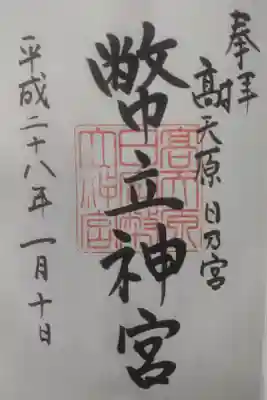 奉拝
高天原日乃宮
幣立神宮
平成二十八年一月十日